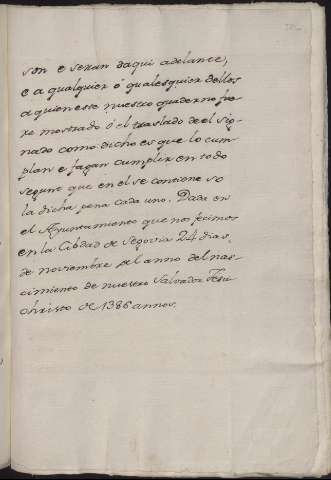 son e seran daqui adelante,
e a qualquier ó qualesquier dellos
a quien este nuestro quaderno fue
re mostrado ó el traslado de el sig-
nado como dicho es que lo cum-
plan e fagan cumplir en todo
segunt que en el se contiene so
la dicha pena cada uno. Dada en
el Ayuntamiento que nos fecimos
en la Cibdad de Segovia 24 dias
de noviembre del anno del nas-
cimiento de nuestro Salvador Jesu
christo de 1386 annos.